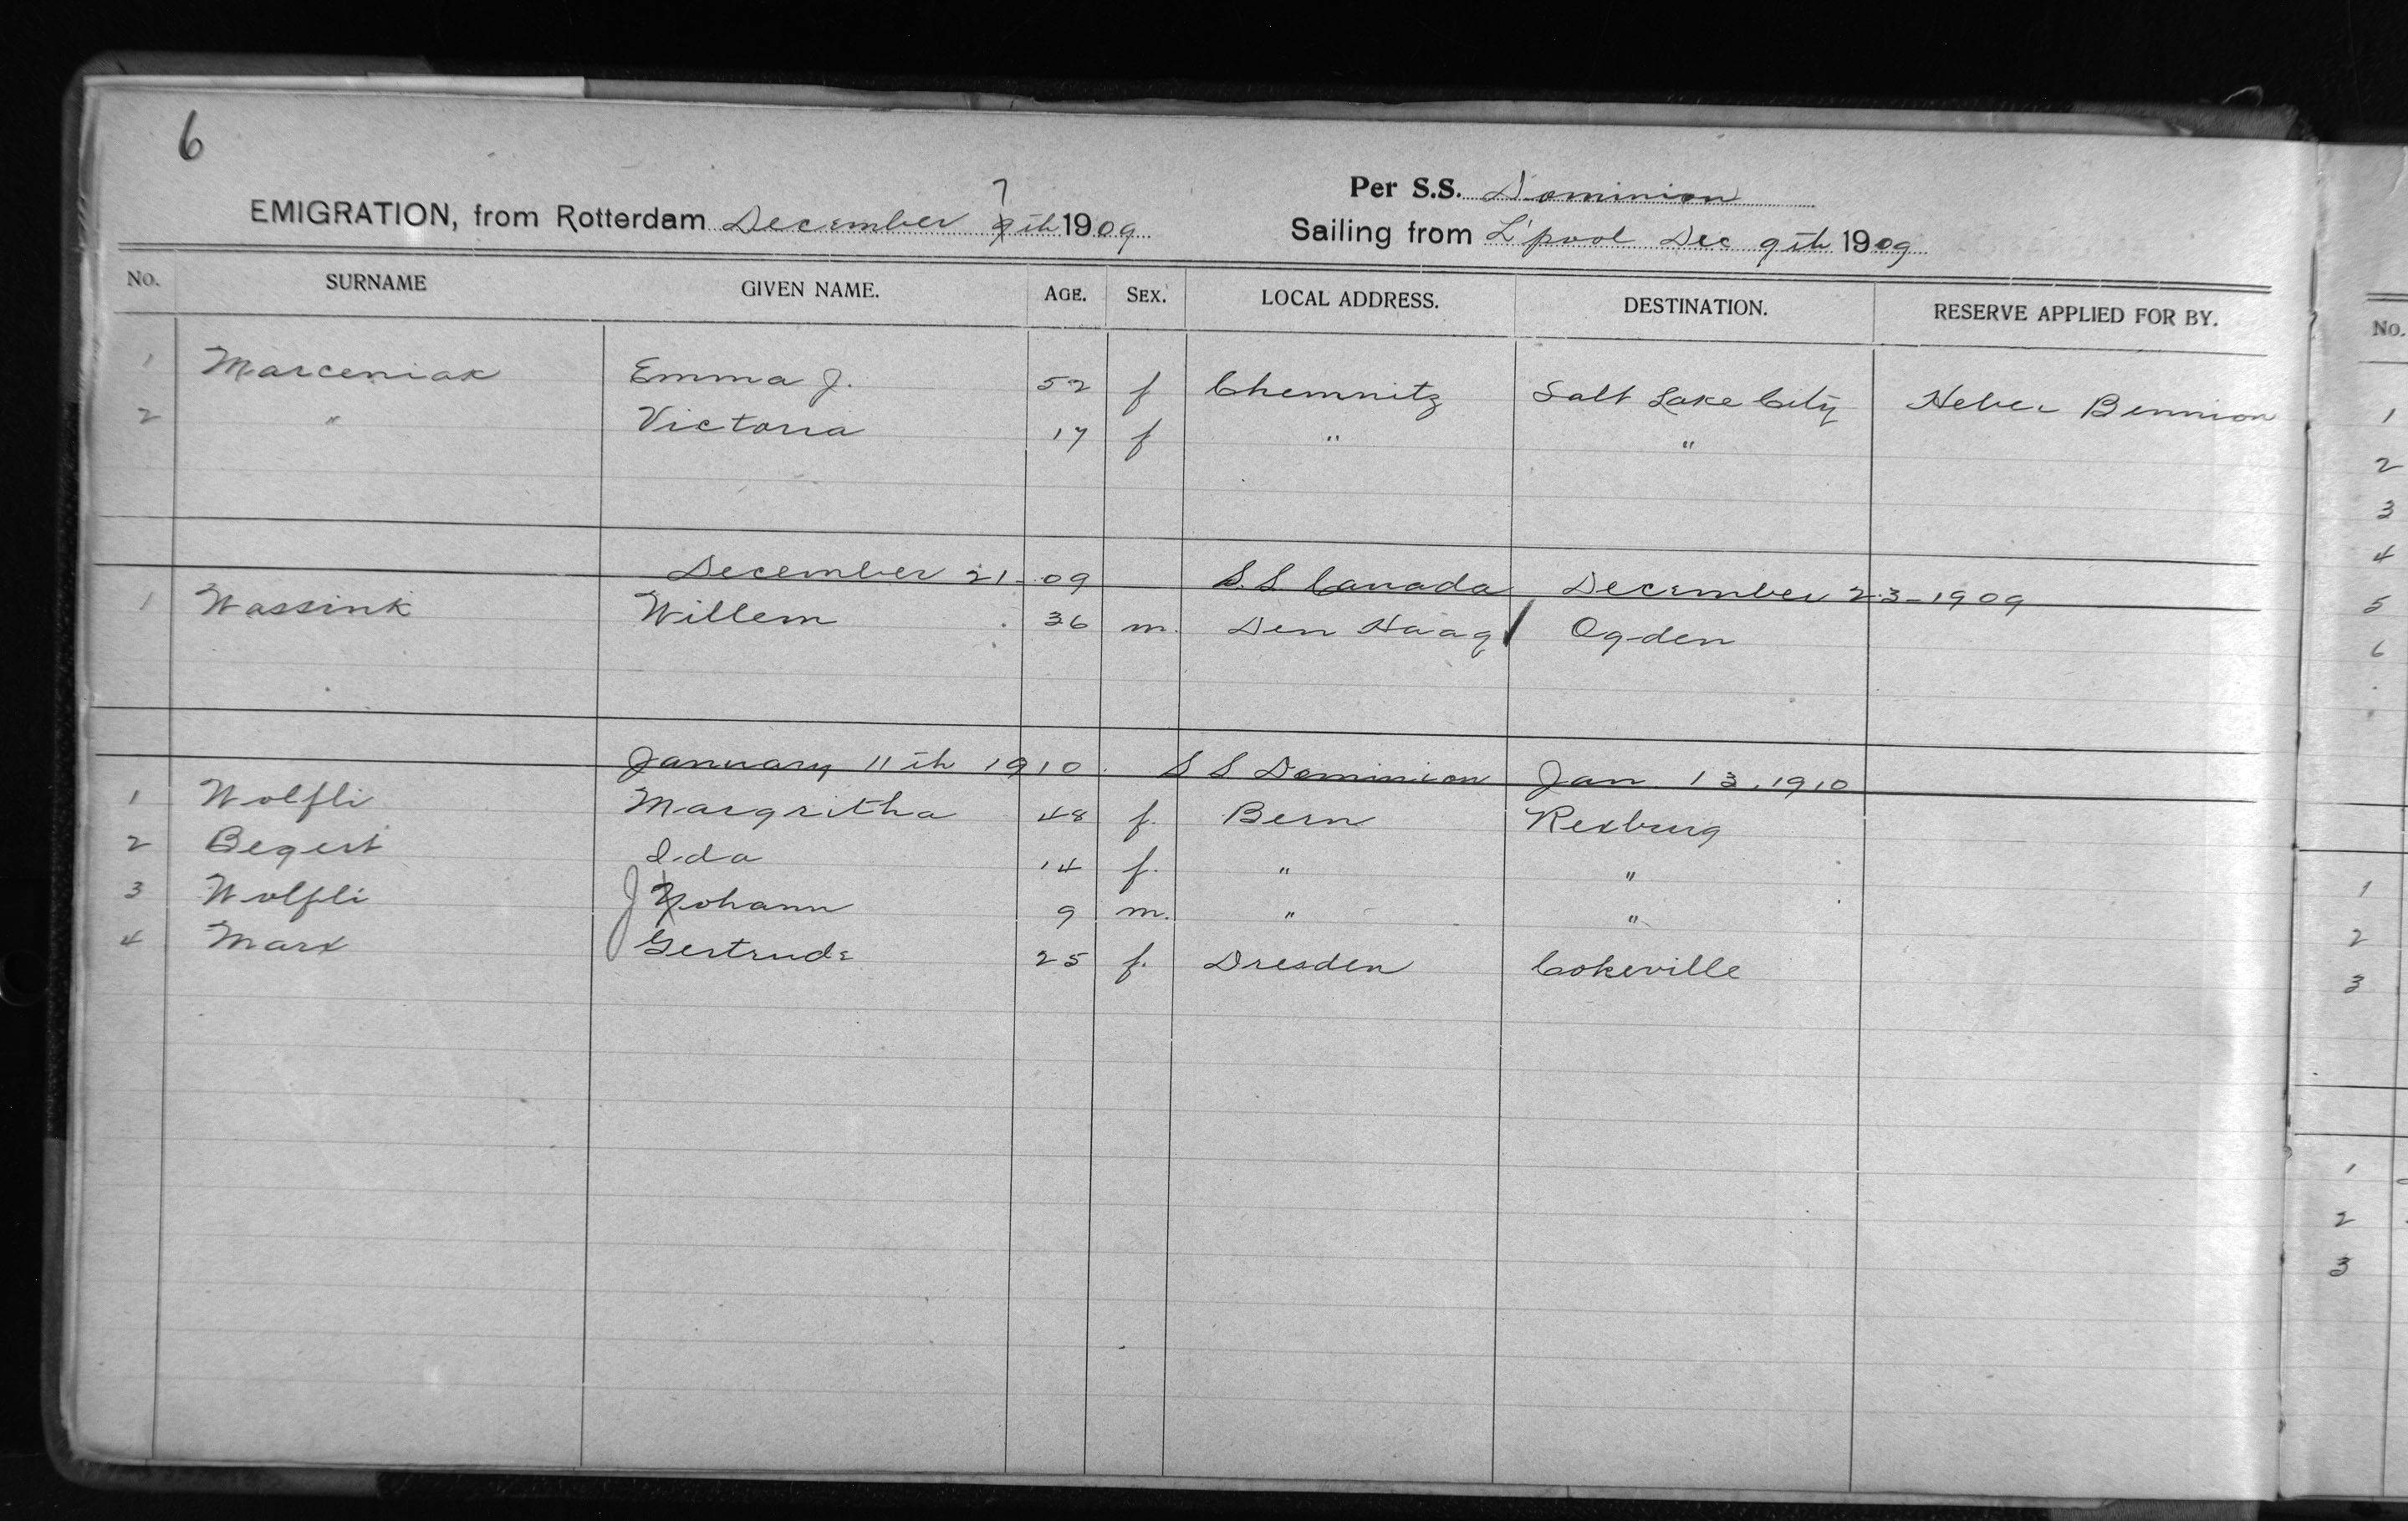 6
EMIGRATION, from Rotterdam December 7th 1909
Per S.S. Dominion
Sailing from L'pool Dec 9th 1909
No. SURNAME GIVEN NAME. AGE. SEX. LOCAL ADDRESS. DESTINATION. RESERVE APPLIED FOR BY.
1 Marceniak Emma J. 52 f Chemnitz Salt Lake City Heber Bennion
2 " Victoria 17 f " "
December 21-09 S.S. Canada December 23-1909
1 Wassink Willem 36 m. Den Haag Ogden
January 11th 1910. S S Dominion Jan. 13, 1910
1 Wolfli Margritha 48 f. Bern Rexburg
2 Begert Ida 14 f. " "
3 Wolfli Johann 9 m. " "
4 Marx Gertrude 25 f. Dresden Cokeville
No.
1
2
3
4
5
6
1
2
3
1
2
3